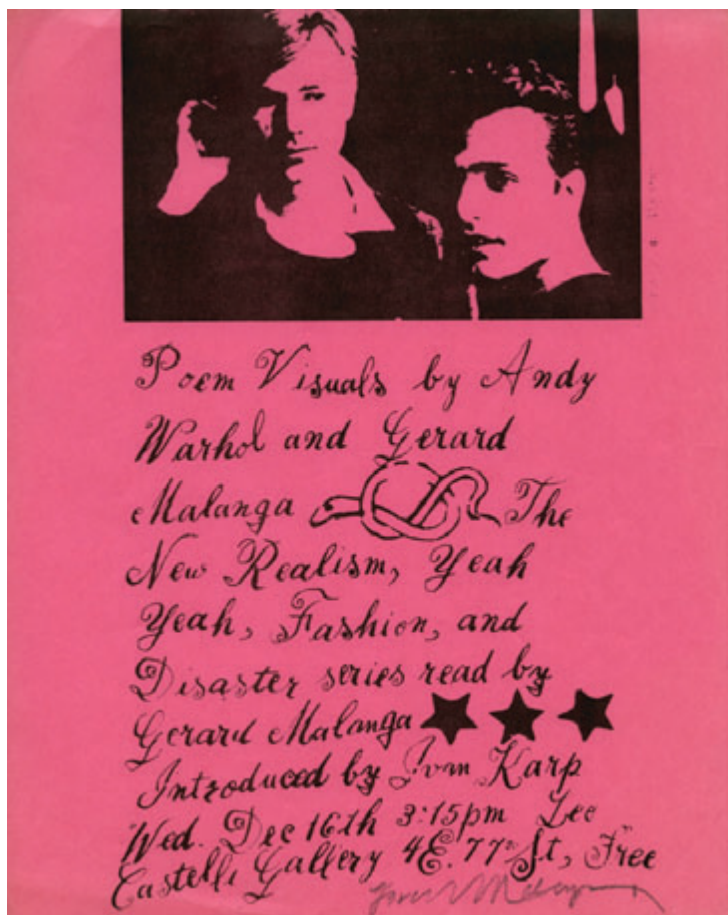 Poem Visuals by Andy
Warhol and Gerard
Malanga The
New Realism, Yeah
Yeah, Fashion, and
Disaster series read by
Gerard Malanga
Introduced by Ivan Karp
Wed. Dec 16th 3:15pm Leo
Castelli Gallery 4E. 77th St, Free